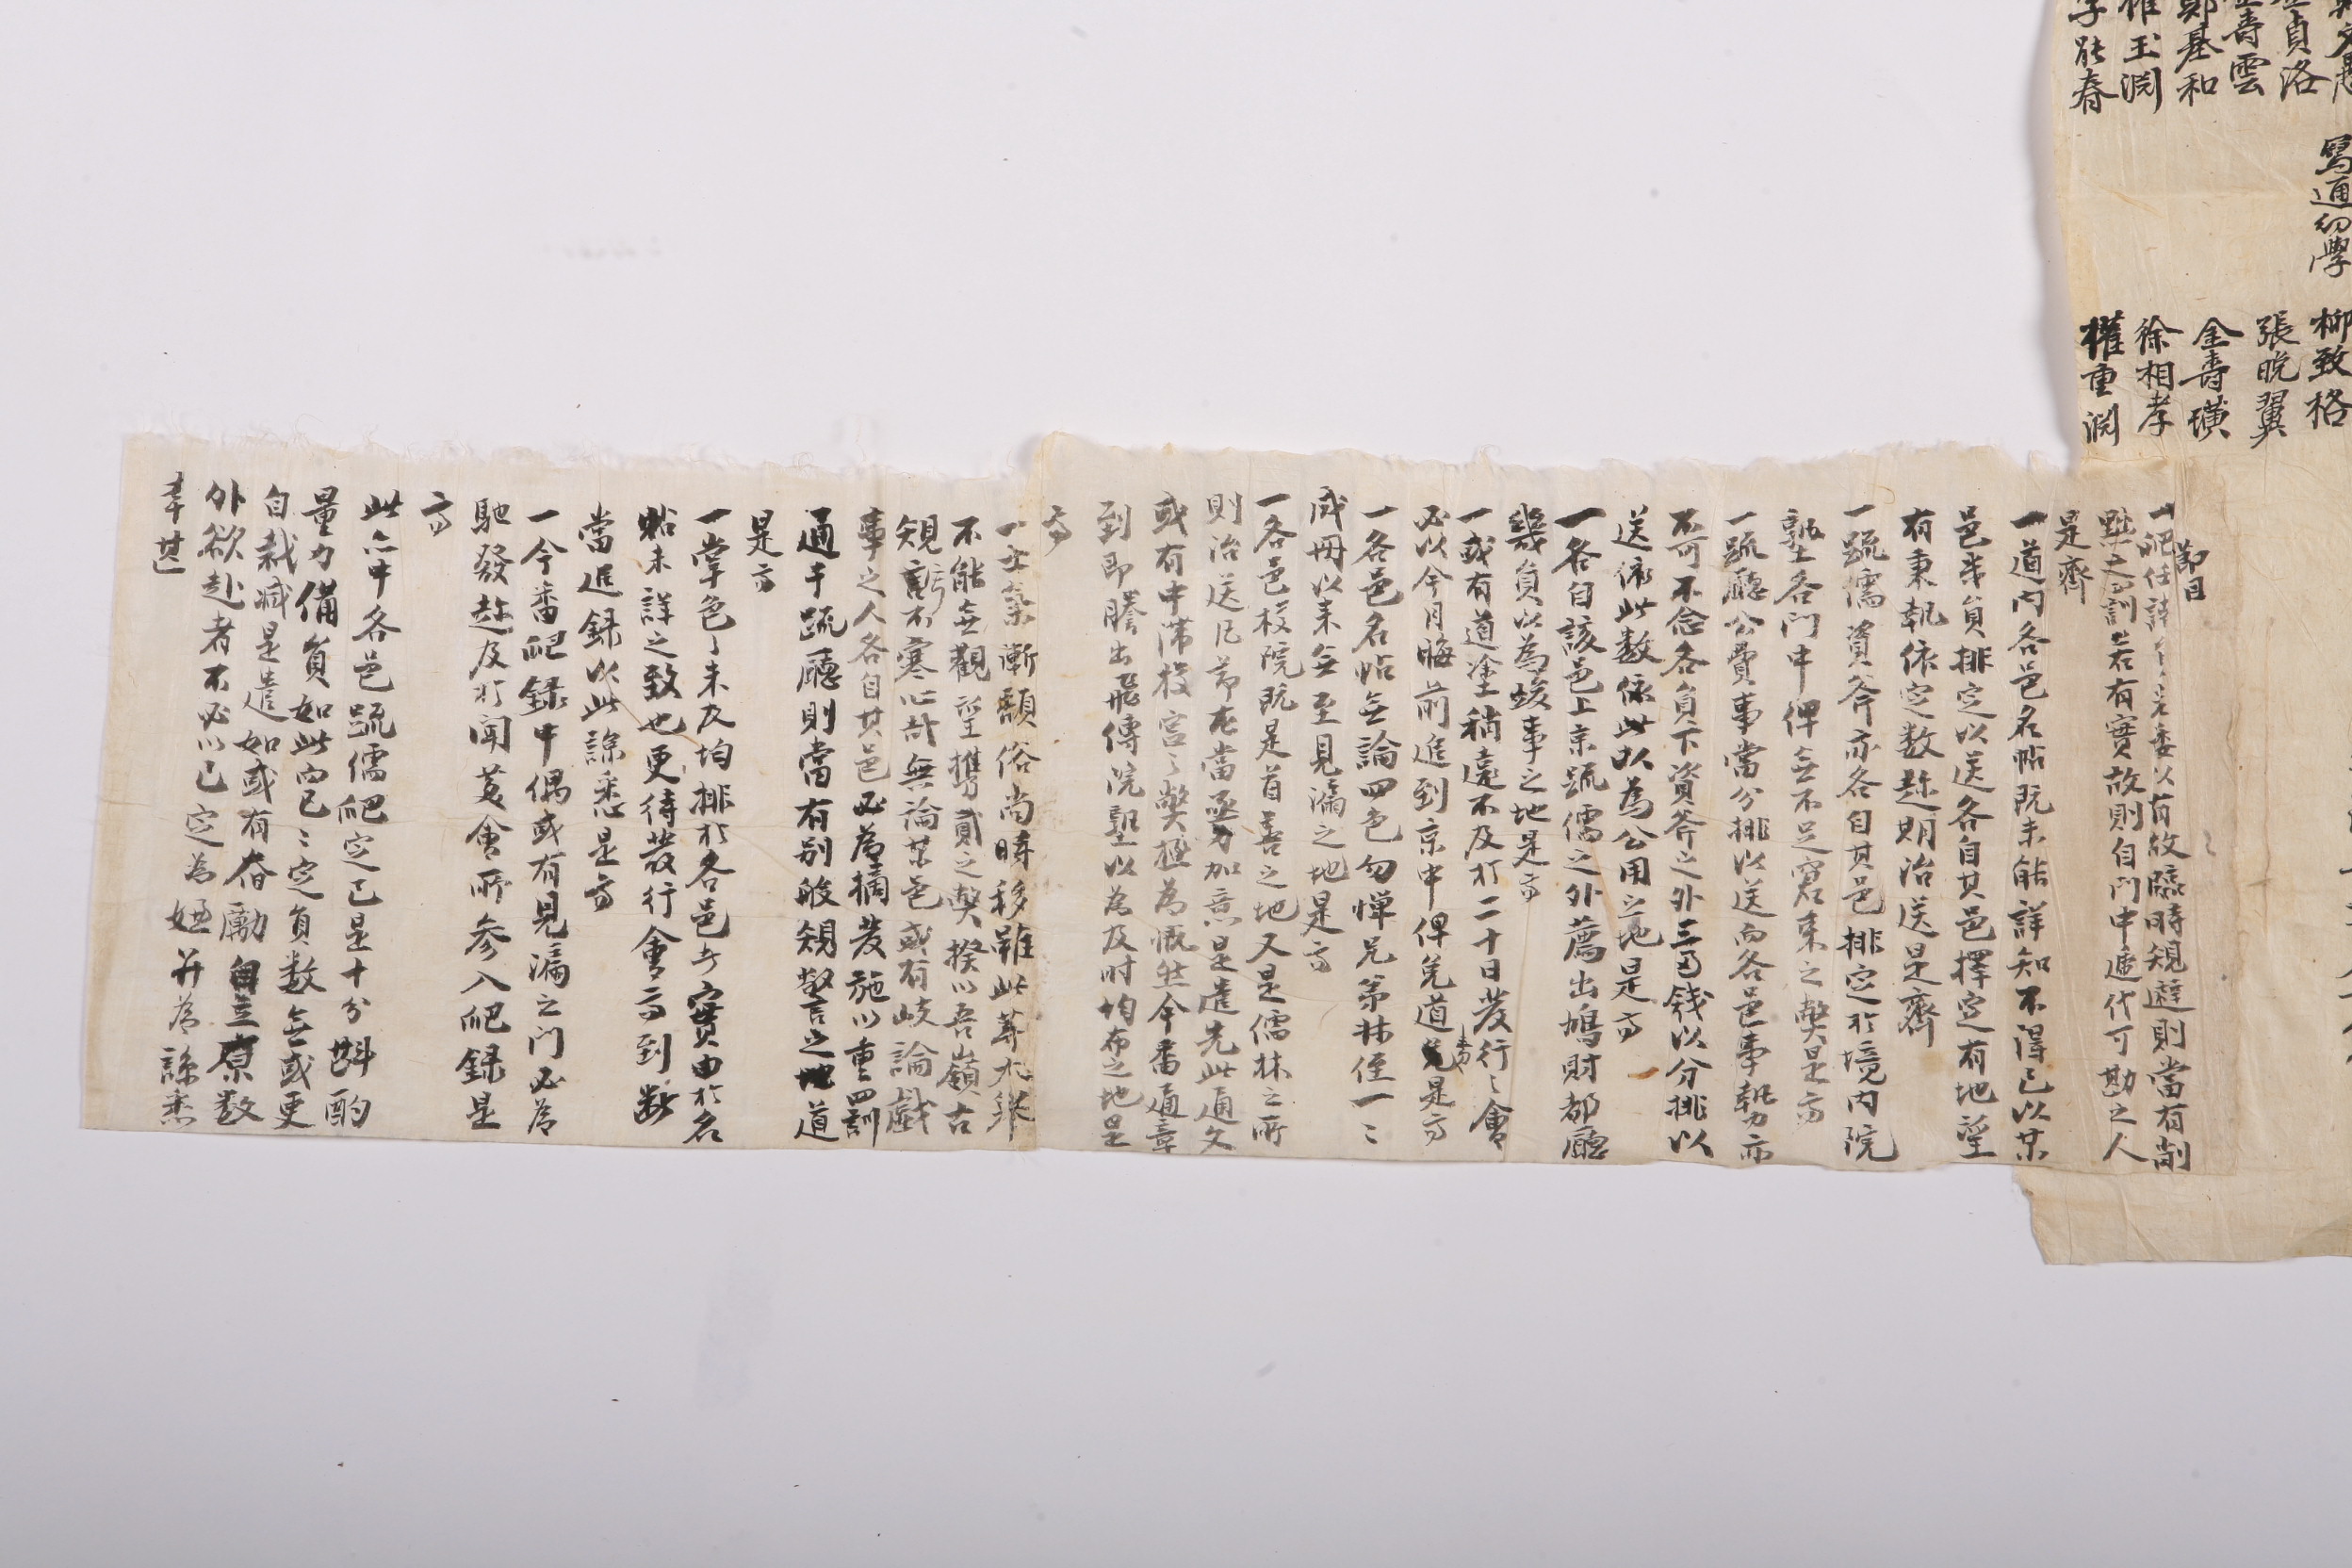 寫通幼學
柳致格
貞洛
張晩翼
壽雲
金壽璜
鄭基和
徐相孝
玉淵
權重淵
李能春
節目
以有故臨時規避則當有削
之訓若有實故則自門中遞代可勘之人
是齊
一道內各邑名帖旣未能詳知不得已以某
邑幾員排定以送各自其邑擇定有地望
有秉執依定数趂期治送是齊
一疏儒資斧亦各自其邑排定於境內院
塾各門中俾無不足窘束之弊是齊
一疏廳公費事當分排以送而各邑事勢亦
不可不念各員下資斧之外三錢以分排以
送依此数依此以爲公用之地是齊
一各自該邑上京疏儒之外薦出鳩財都廳
幾員以爲竣事之地是齊
一或有道塗稍遠不及於二十日發行之會
必以今月晦前進到京中俾免道是齊
一各邑名帖無論四色勿憚兄弟叔侄一々
成冊以來無至見漏之地是齊
一各邑校院旣是首善之地又是儒林之所
則治送凡節尤當亟力加意是遣先此通文
或有中滯校宮之弊極爲慨然今番通章
到卽謄出飛傳院塾以爲及时均布之地是
齊
一士氣漸頹俗尚時移雖此莽大擧
不能無觀望携貳之弊揆以吾嶺古
規豈不寒心哉無論某邑或有岐論戱
事之人各自其邑必爲摘發施以重罰
通于疏廳則當有別般規警之地道
是齊
一掌色未及均排於各邑實由於名
帖未詳之致也更待發行會齊到
當追錄以此諒悉是齊
一今番爬錄中偶或有見漏之门必爲
馳發趂及於聞慶會所參入爬錄是
齊
此亦中各邑疏儒爬定已是十分斟酌
量力備員如此而已々定員数無或更
自裁減是遣如或有奮勵自立原数
外欲赴者不必以已定爲拘并爲諒悉
幸甚